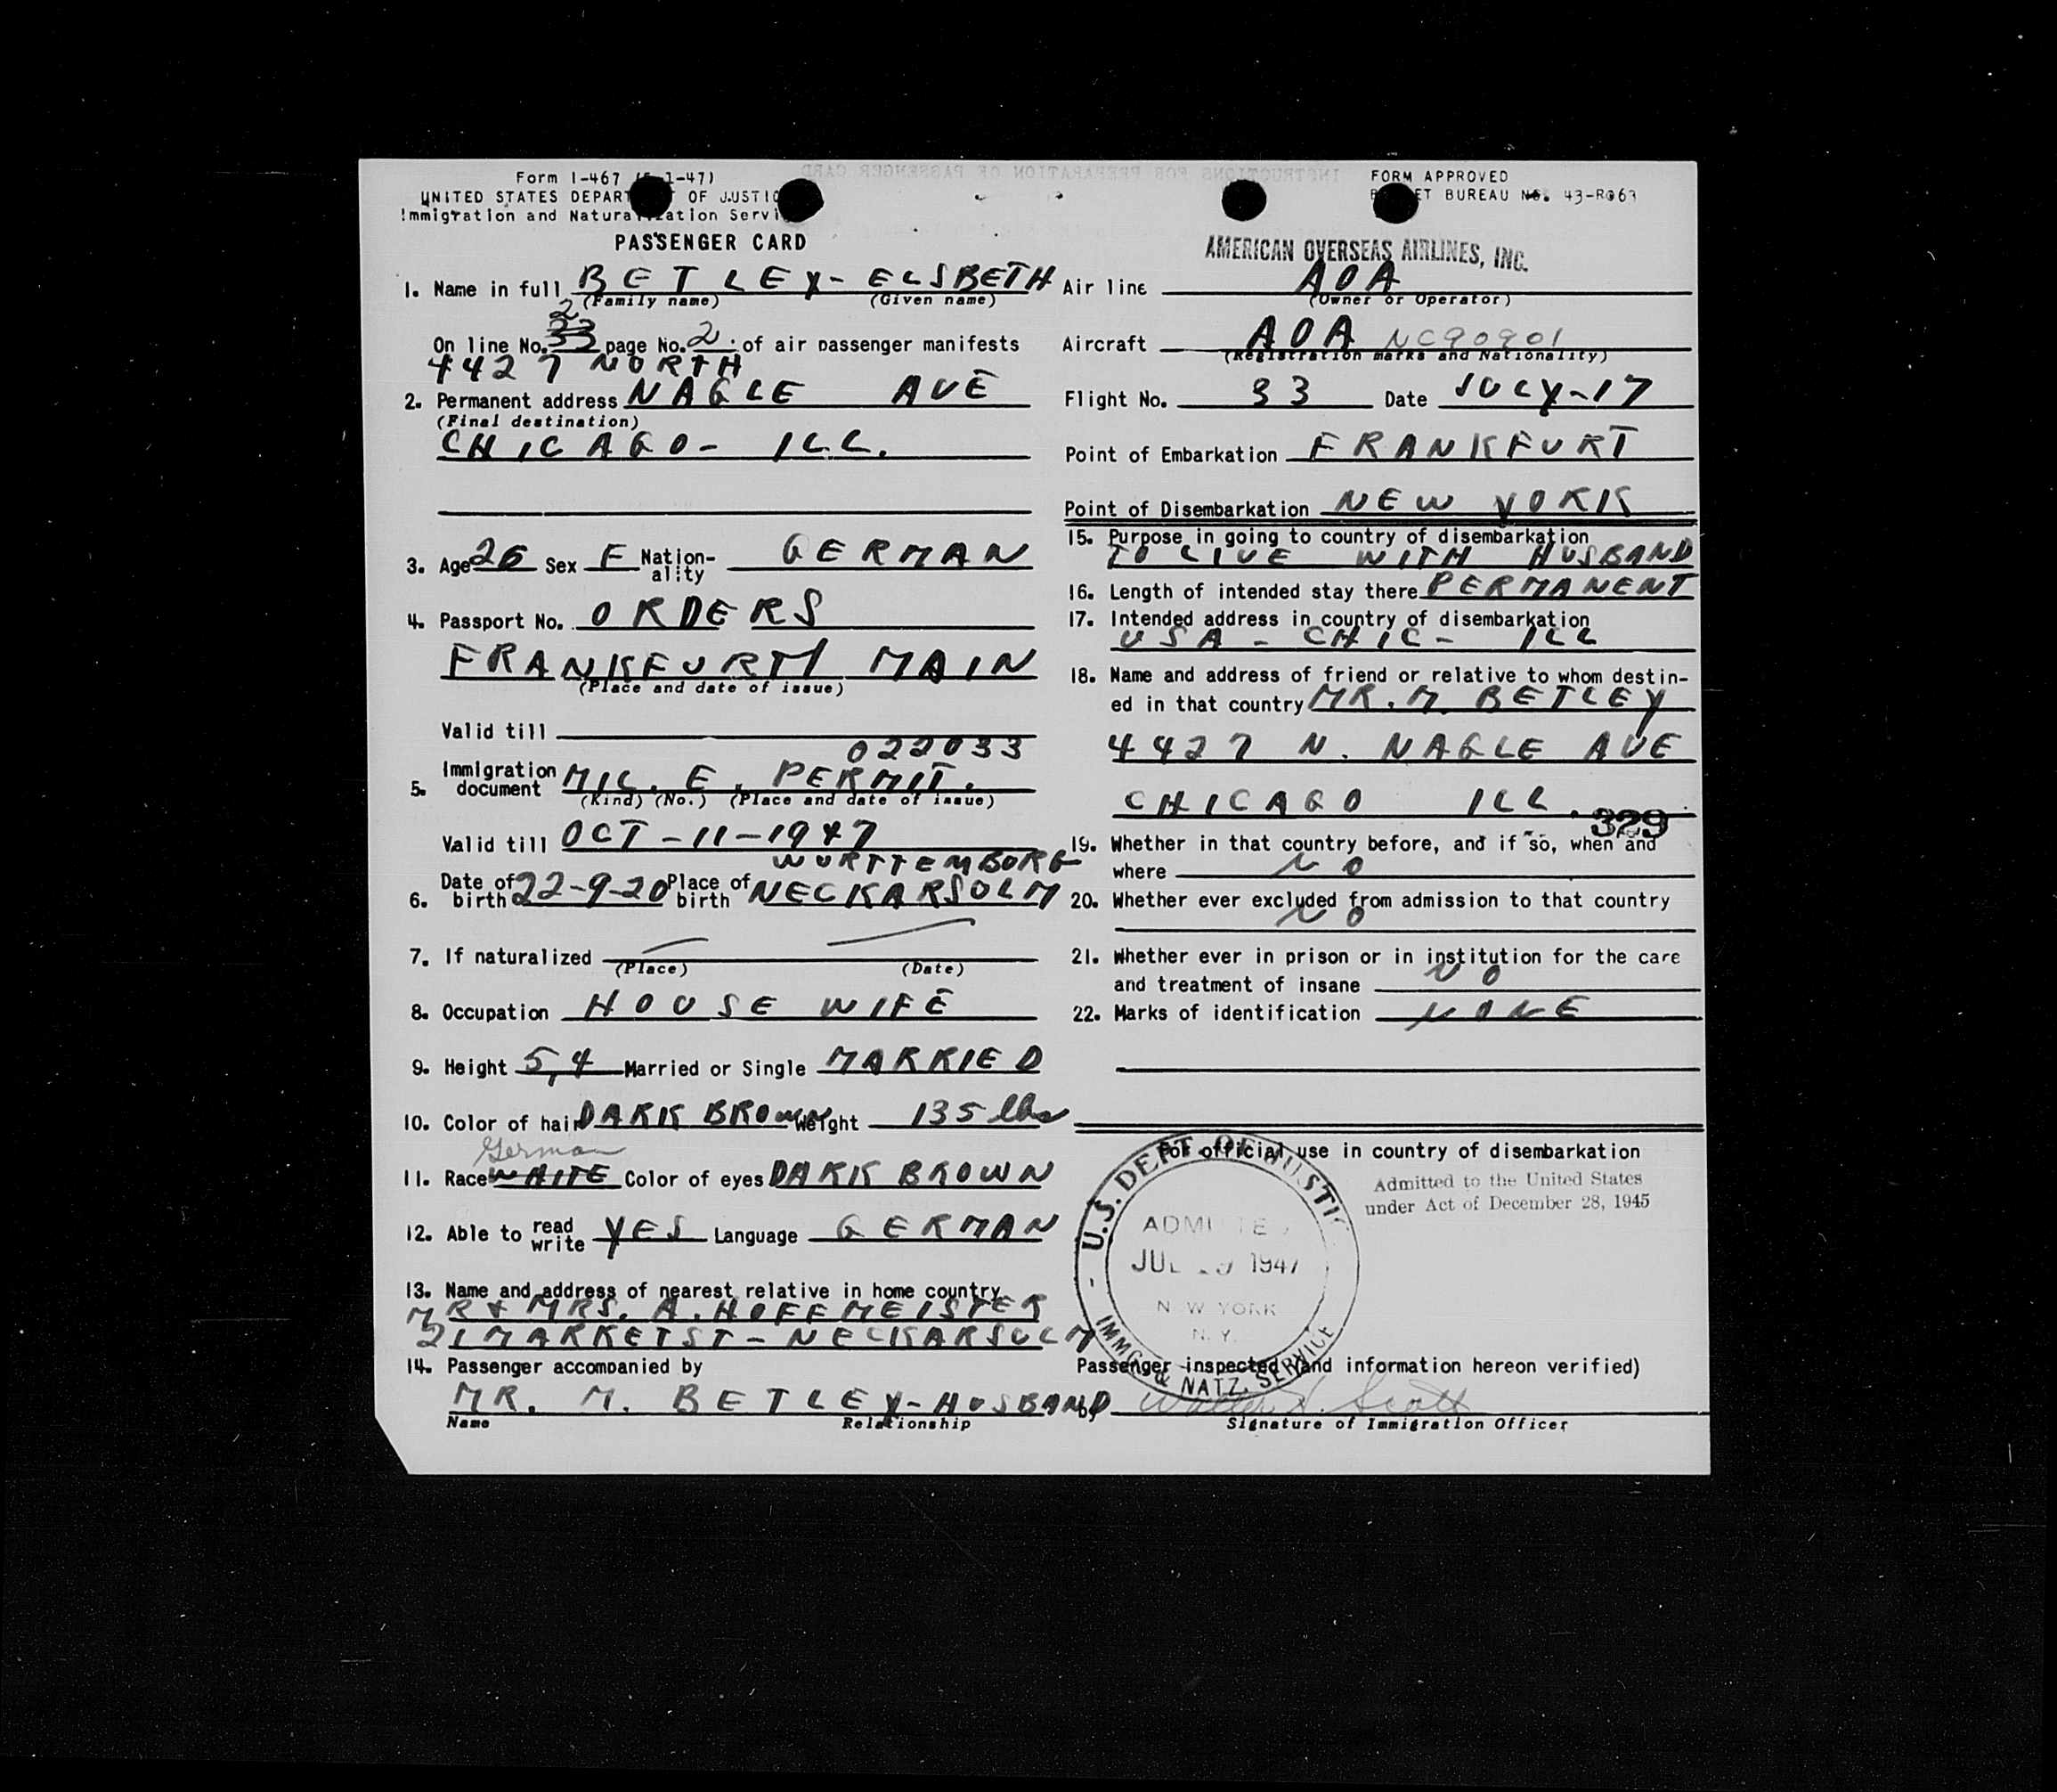 Form I-467 1-47)
UNITED STATES DEPAR OF JUSTIC
Immigration and Natura zation Servi
PASSENGER CARD
FORM APPROVED
ET BUREAU NO. 43-R063
AMERICAN OVERSEAS AIRLINES, INC.
1. Name in full BETLEY - ELSBETH
(Family name) (Given name)
2
On line No. 33 page No. 2 of air passenger manifests
4427 NORTH
2. Permanent address NAGLE AVE
(Final destination)
CHICAGO - ILL.
3. Age 26 Sex F Nation-ality GERMAN
4. Passport No. ORDERS
FRANKFURT/ MAIN
(Place and date of issue)
Valid till
022033
5. Immigration document MIL. E. PERMIT.
(Kind) (No.) (Place and date of issue)
Valid till OCT - 11 - 1947
WURTTEMBORG
6. Date of birth 22-9-20 Place of birth NECKARSOLM
7. If naturalized
(Place) (Date)
8. Occupation HOUSE WIFE
9. Height 5,4 Married or Single MARRIED
10. Color of hair DARK BROWN Weight 135 lbs
German
11. Race WHITE Color of eyes DARK BROWN
12. Able to read write YES Language GERMAN
13. Name and address of nearest relative in home country
MR & MRS. A. HOFFMEISTER
21 MARKETST - NECKARSULM
14. Passenger accompanied by
MR. M. BETLEY - HUSBAND
Name Relationship
Air line AOA
(Owner or Operator)
Aircraft AOA NC90901
(Registration marks and Nationality)
Flight No. 33 Date JULY-17
Point of Embarkation FRANKFURT
Point of Disembarkation NEW YORK
15. Purpose in going to country of disembarkation
TO LIVE WITH HUSBAND
16. Length of intended stay there PERMANENT
17. Intended address in country of disembarkation
USA - CHIC - ILL
18. Name and address of friend or relative to whom destin-
ed in that country MR. M. BETLEY
4427 N. NAGLE AVE
CHICAGO ILL.
329
19. Whether in that country before, and if so, when and
where NO
20. Whether ever excluded from admission to that country
NO
21. Whether ever in prison or in institution for the care
and treatment of insane NO
22. Marks of identification NONE
For official use in country of disembarkation
Admitted to the United States
under Act of December 28, 1945
U.S. DEPT. OF JUSTIC
ADMITTED
JUL 1947
NEW YORK
N.Y.
IMMG. & NATZ. SERVICE
Passenger inspected (and information hereon verified)
by Walter H. Scott
Signature of Immigration Officer